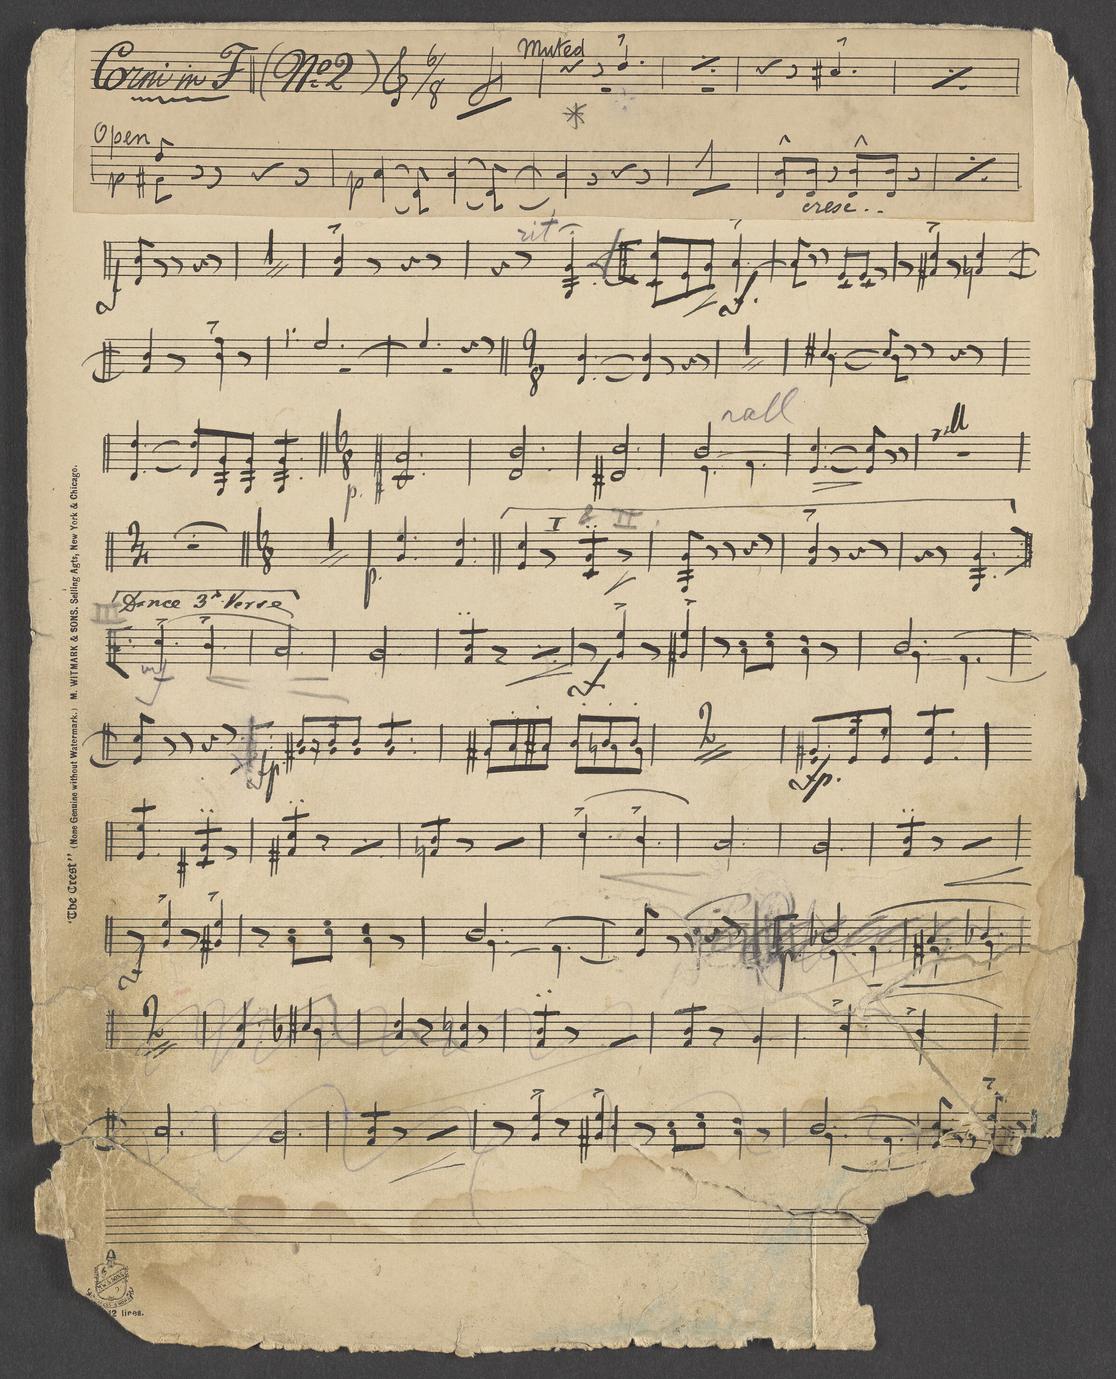 Corni in F (No. 2) 6/8 Muted
Open
p p cresc..
f rit f.
9/8
6/8 p. rall rall
2/4 6/8 p. I & II.
III Dance 3rd Verse
mf f
fp 2 fp.
f
2
"The Crest" (None Genuine without Watermark.) M. WITMARK & SONS. Selling Agts, New York & Chicago.
12 lines.